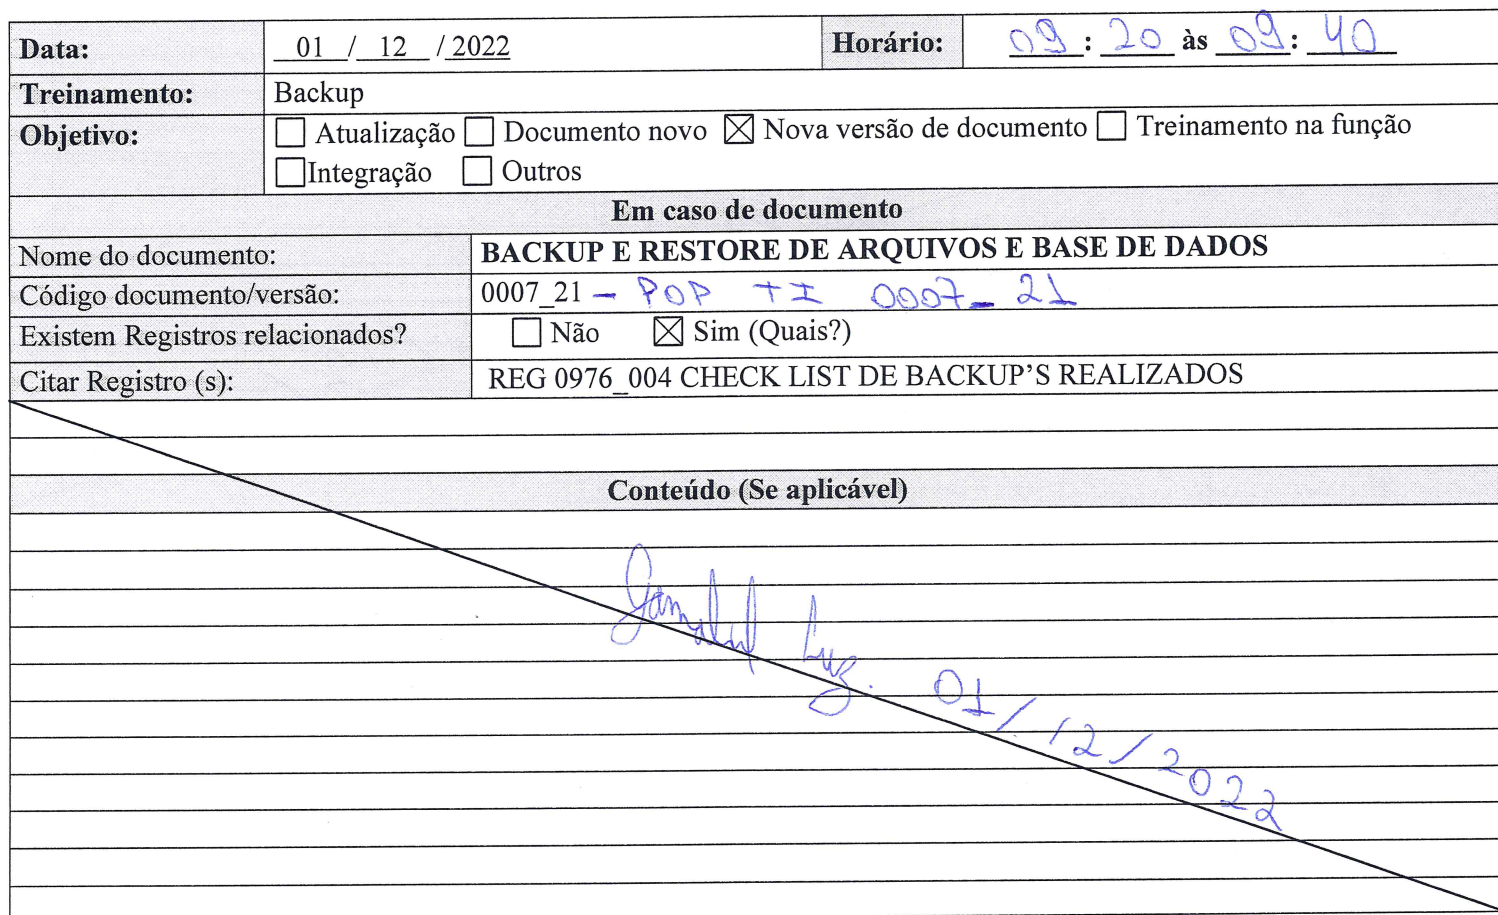 Data: 01 / 12 / 2022 Horário: 09 : 20 às 09 : 40
Treinamento: Backup
Objetivo: ☐ Atualização ☐ Documento novo ☒ Nova versão de documento ☐ Treinamento na função
☐ Integração ☐ Outros
Em caso de documento
Nome do documento: BACKUP E RESTORE DE ARQUIVOS E BASE DE DADOS
Código documento/versão: 0007_21 - POP TI 0007_21
Existem Registros relacionados? ☐ Não ☒ Sim (Quais?)
Citar Registro (s): REG 0976_004 CHECK LIST DE BACKUP’S REALIZADOS
Conteúdo (Se aplicável)
Luz. 01/12/2022